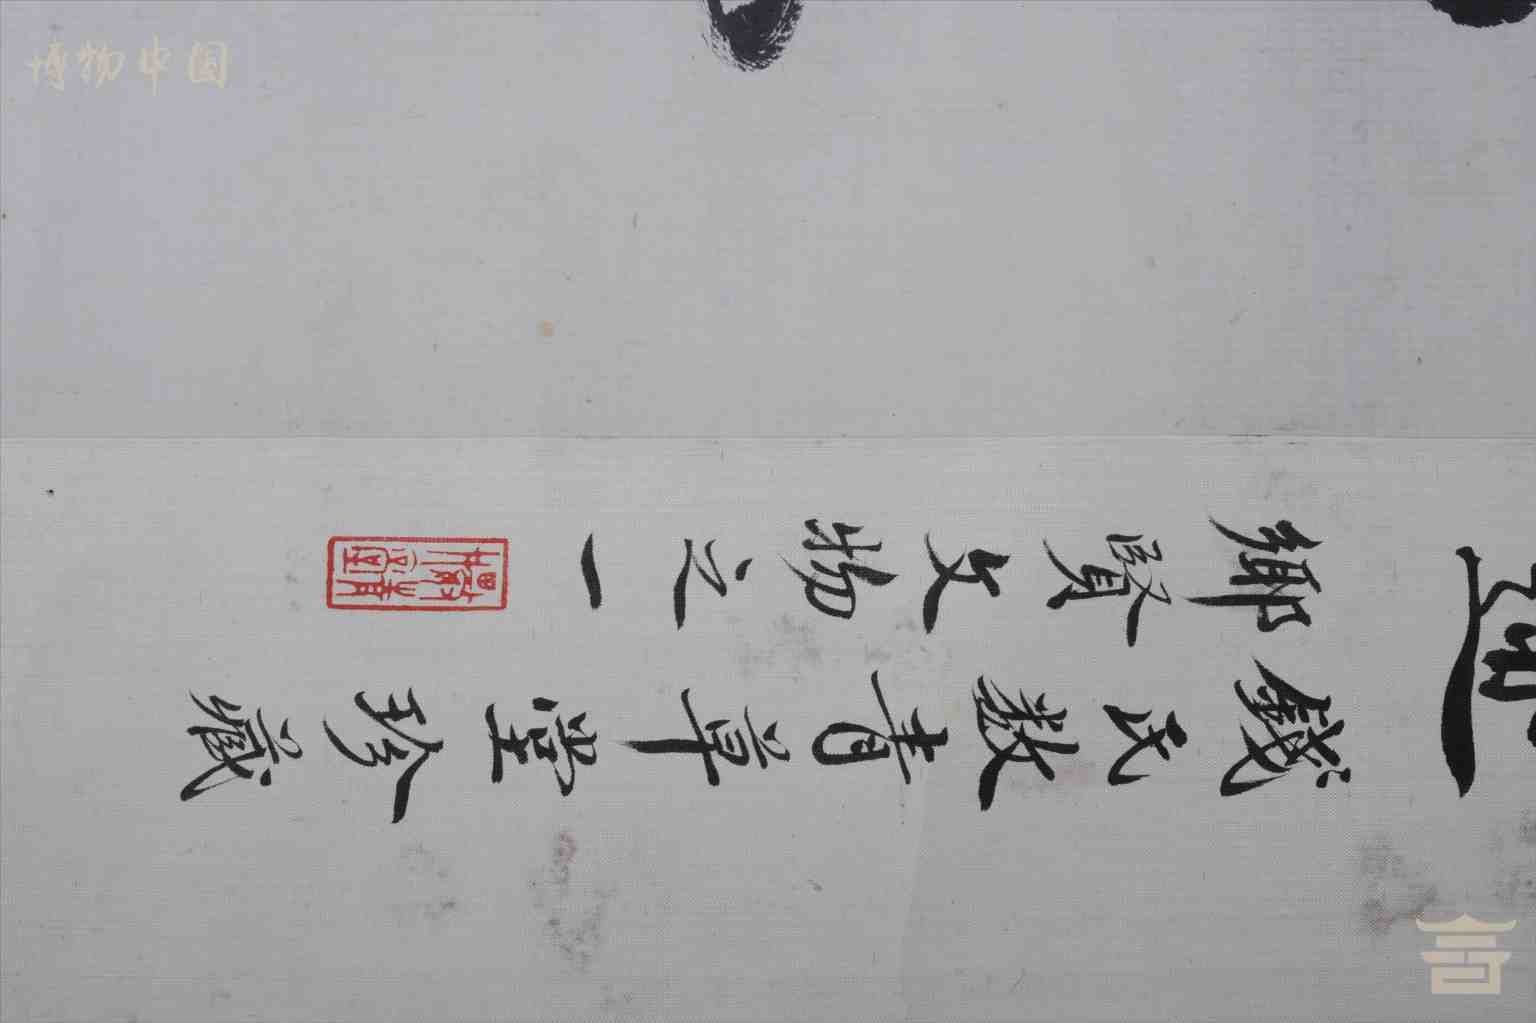 錢氏數青草堂珍藏
鄉賢文物之一
博物中国